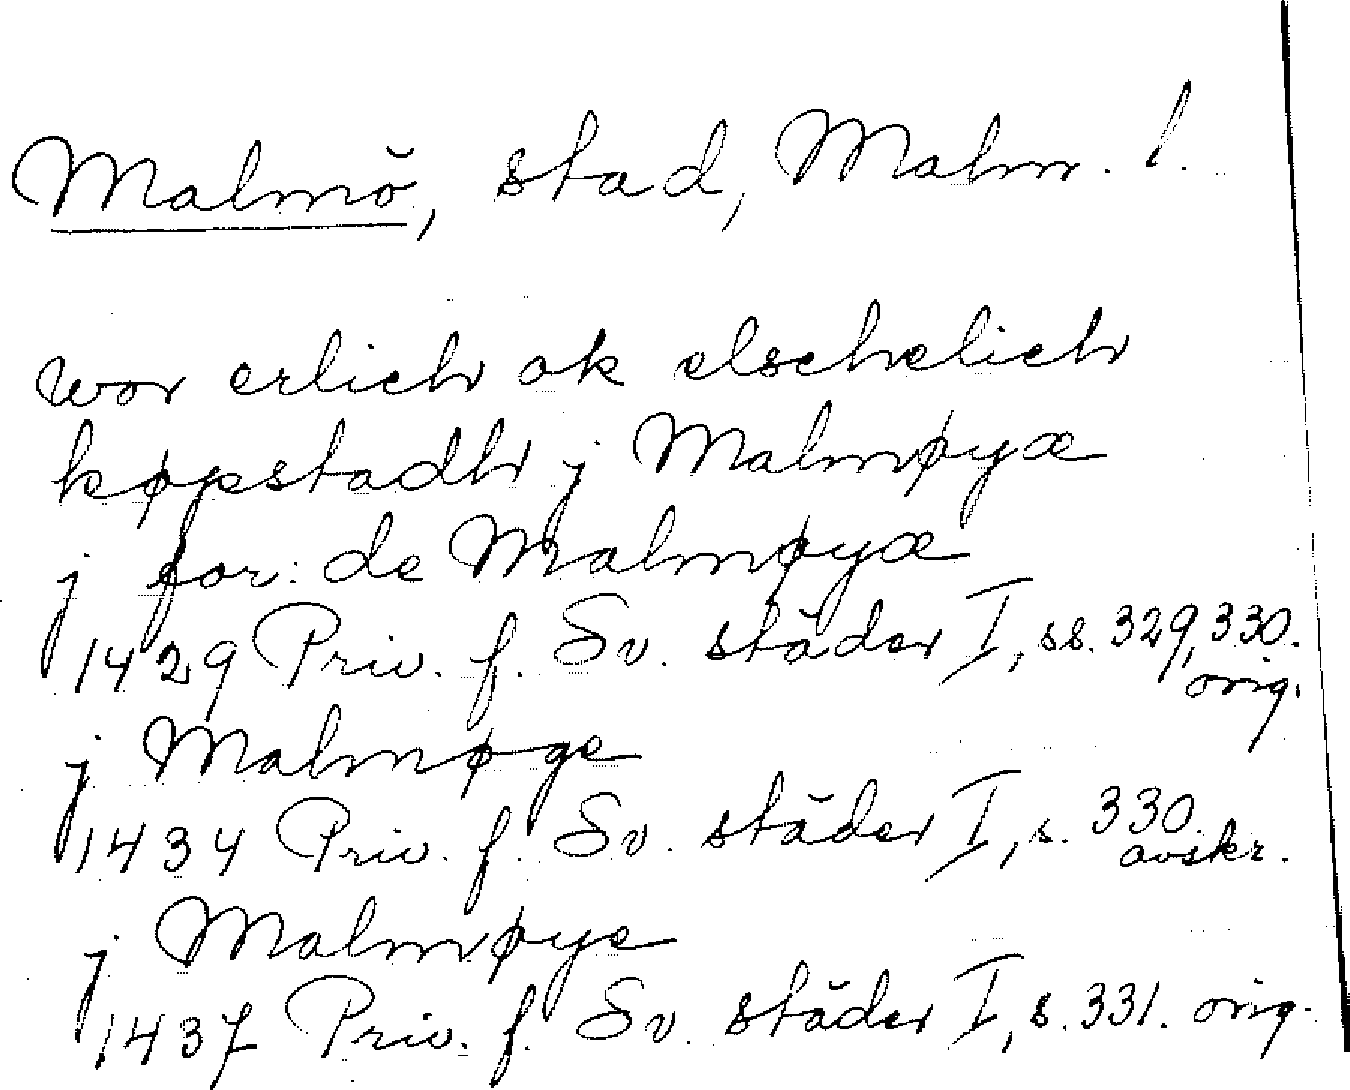 Malmö, stad, Malm. l.
wor erlich ok elschelich
køpstadh j Malmøyæ
j for: de Malmøyæ
1429 Priv. f. Sv. städer I, ss. 329, 330.
orig.
j Malmøge
1434 Priv. f. Sv. städer I, s. 330.
avskr.
j Malmøye
1437 Priv. f. Sv. städer I, s. 331. orig.